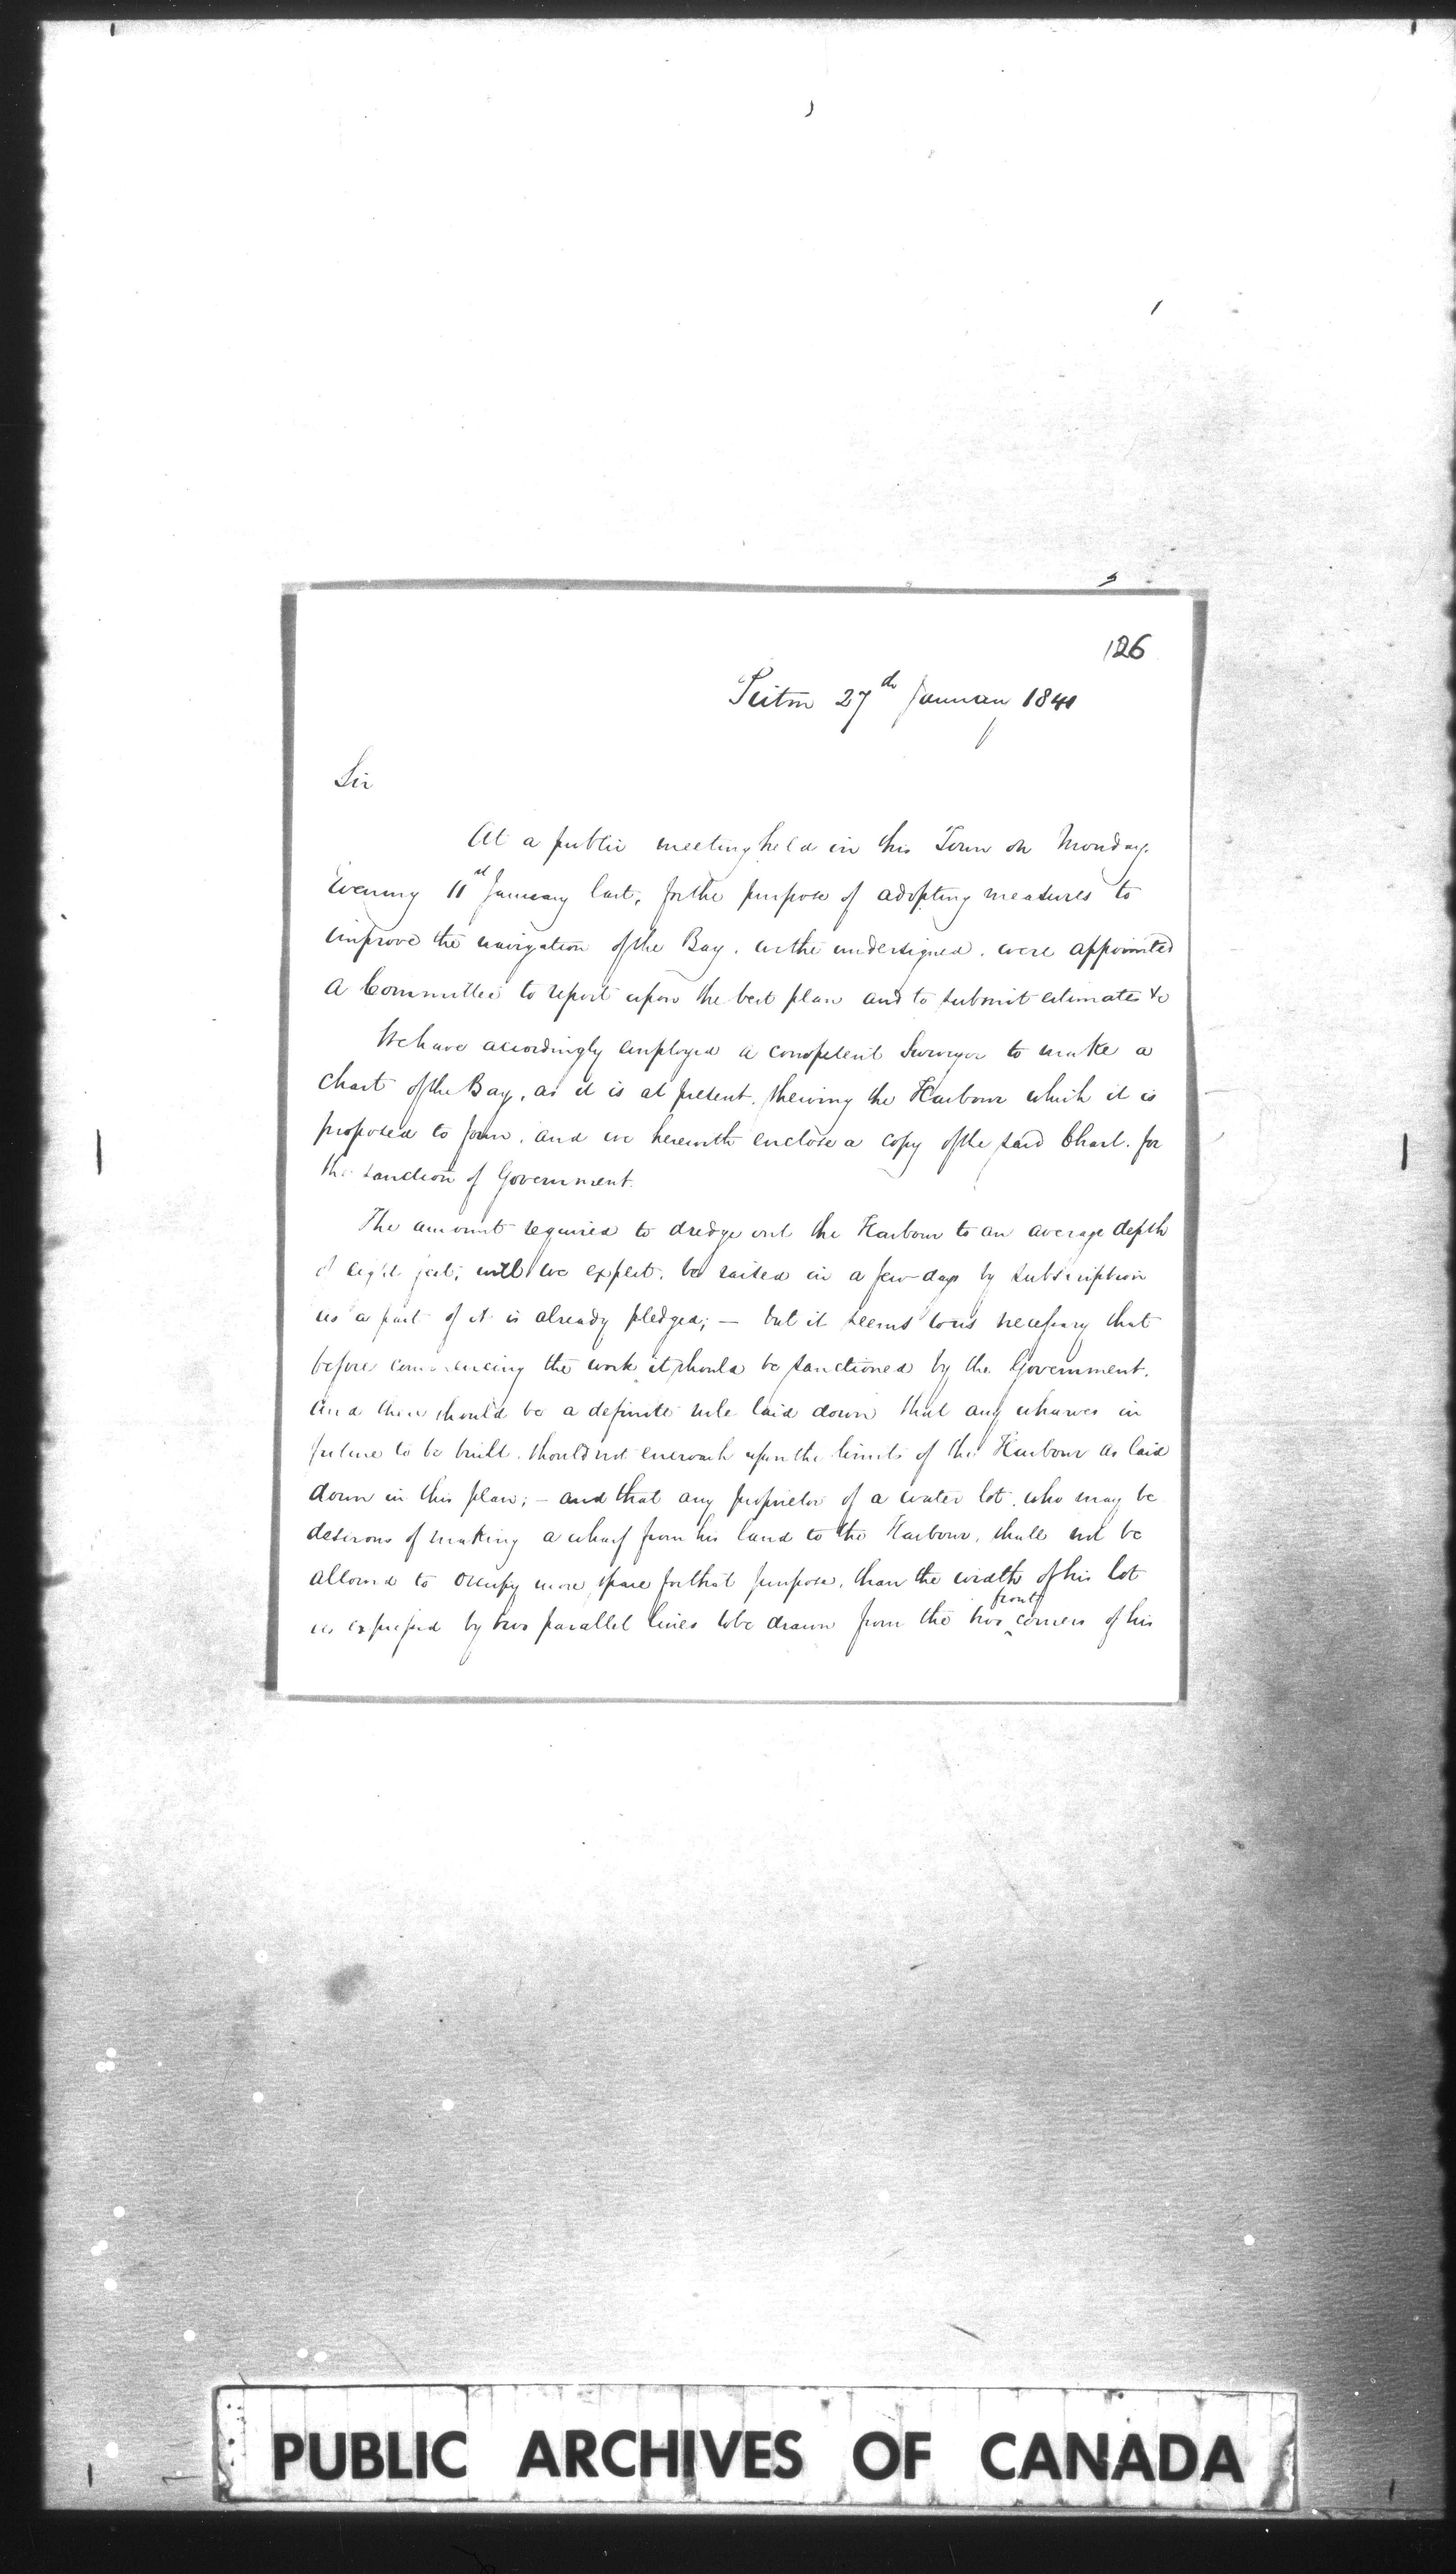 126
Picton 27th January 1841
Sir
At a public meeting held in this Town on Monday
Evening 11th January last, for the purpose of adopting measures to
improve the navigation of the Bay, we the undersigned, were appointed
a Committee to report upon the best plan and to submit estimates &c
We have accordingly employed a competent Surveyor to make a
chart of the Bay, as it is at present, shewing the Harbour which it is
proposed to form, and we herewith enclose a copy of the said Chart for
the sanction of Government.
The amount required to dredge out the Harbour to an average depth
of eight feet, will we expect, be raised in a few days by subscription
as a part of it is already pledged; — but it seems to us necessary that
before commencing the work it should be sanctioned by the Government,
and there should be a definite rule laid down that any wharves in
future to be built, should not encroach upon the limits of the Harbour as laid
down in this plan; — and that any proprietor of a water lot, who may be
desirous of making a wharf from his land to the Harbour, shall not be
allowed to occupy more space for that purpose, than the width of his lot
as expressed by two parallel lines to be drawn from the two front corners of his
PUBLIC ARCHIVES OF CANADA